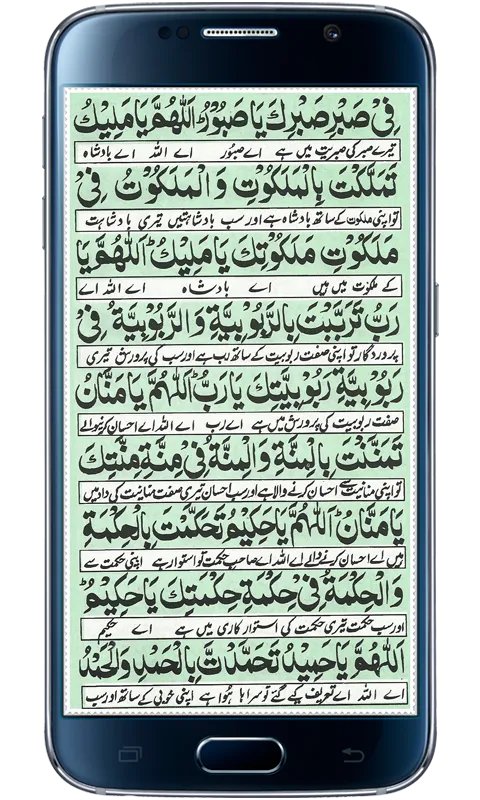 فِىْ صَبْرِ صَبْرِكَ يَا صَبُوْرُ اَللّٰهُمَّ يَا مَلِيْكُ
تیرے صبر کی صبریت میں ہے اے صبُوْر اے اللہ اے بادشاہ
تَمَلَّكْتَ بِالْمَلَكُوْتِ وَالْمَلَكُوْتُ فِىْ
تو اپنی ملکوت کے ساتھ بادشاہ ہے اور سب بادشاہتیں تیری بادشاہت
مَلَكُوْتِ مَلَكُوْتِكَ يَا مَلِيْكُ اَللّٰهُمَّ يَا
کے ملکوت میں ہیں اے بادشاہ اے اللہ اے
رَبُّ تَرَبَّبْتَ بِالرَّبُوْبِيَّةِ وَالرَّبُوْبِيَّةُ فِىْ
پروردگار تو اپنی صفت ربوبیت کے ساتھ رب ہے اور سب کی پرورش تیری
رَبُوْبِيَّةِ رَبُوْبِيَّتِكَ يَا رَبُّ اَللّٰهُمَّ يَا مَنَّانُ
صفت ربوبیت کی پرورش میں ہے اے رب اے اللہ اے احسان کرنیوالے
تَمَنَّنْتَ بِالْمِنَّةِ وَالْمِنَّةُ فِىْ مِنَّةِ مِنَّتِكَ
تو اپنی منانیت سے احسان کرنے والا ہے اور سب احسان تیری صفت منانیت کی داد میں
يَا مَنَّانُ اَللّٰهُمَّ يَا حَكِيْمُ تَحَكَّمْتَ بِالْحِكْمَةِ
ہیں اے احسان کرنے والے اے اللہ اے صاحب حکمت تو استوار ہے اپنی حکمت سے
وَالْحِكْمَةُ فِىْ حِكْمَةِ حِكْمَتِكَ يَا حَكِيْمُ
اور سب حکمت تیری حکمت کی استوار کاری میں ہے اے حکیم
اَللّٰهُمَّ يَا حَمِيْدُ تَحَمَّدْتَ بِالْحَمْدِ وَالْحَمْدُ
اے اللہ اے تعریف کیے گئے تو سراہا ہُوا ہے اپنی خوبی کے ساتھ اور سب